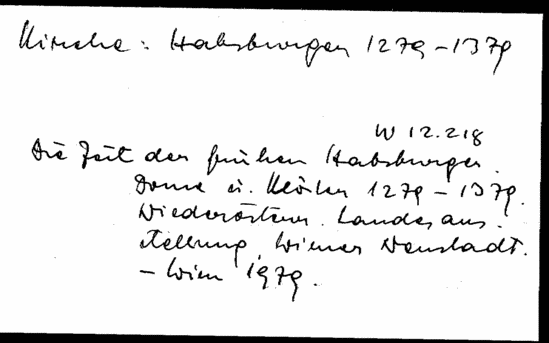 Kirche: Habsburger 1279-1379
W 12.218
Die Zeit der frühen Habsburger.
Dome u. Klöster 1279-1379.
Niederösterr. Landesaus-
stellung, Wiener Neustadt.
- Wien 1979.